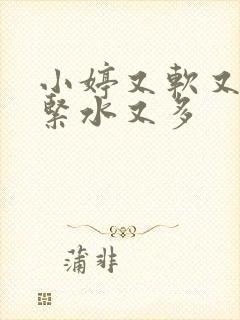 小婷又軟又
緊水又多
蒲非